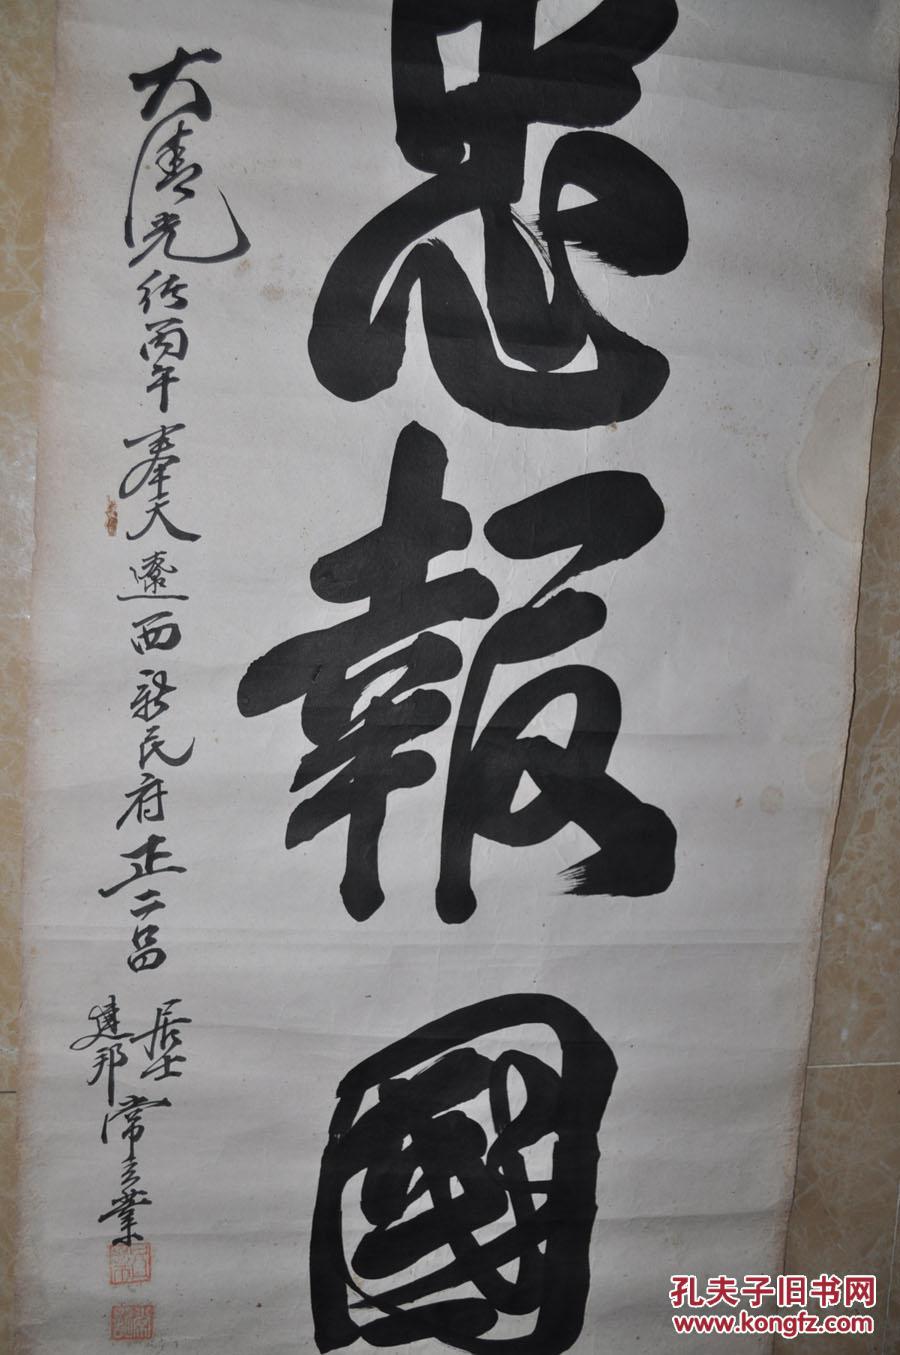 忠報國
大清光緒丙午奉天遼西新民府正二品
居士
建邦
常立業
孔夫子旧书网
www.kongfz.com